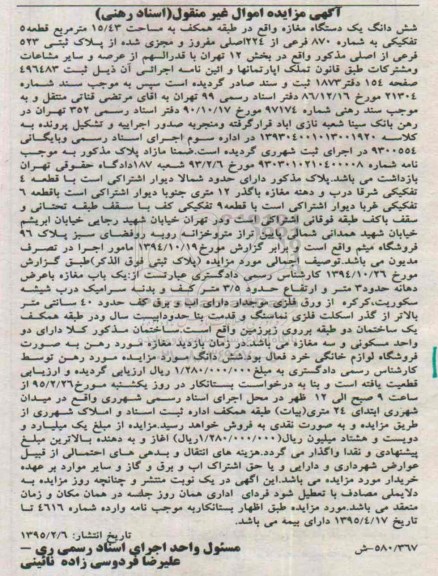 آگهی مزایده اموال غیر منقول(اسناد رهنی)
شش دانگ یک دستگاه مغازه واقع در طبقه همکف به مساحت ۱۵/۴۳ مترمربع قطعه۵
تفکیکی به شماره ۸۷۰ فرعی از ۲۲۴اصلی مفروز و مجزی شده از پلاک ثبتی ۵۲۳
فرعی از اصلی مذکور واقع در بخش ۱۲ تهران با قدرالسهم از عرصه و سایر مشاعات
ومشترکات طبق قانون تملک اپارتمانها و ائین نامه اجرائی آن ذیل ثبت ۴۹۶۴۸۳
صفحه ۱۵۴ دفتر۱۸۷۳ ثبت و سند صادر گردیده است سپس به موجب سند شماره
۲۱۳۰۴ مورخ ۸۶/۱۲/۱۶ دفتر اسناد رسمی ۹۹ تهران به اقای مرتضی قنائی منتقل و به
موجب سند رهنی شماره ۹۷۱۷۴ مورخ ۹۰/۱۰/۱۷ دفتر اسناد رسمی ۳۵۲ تهران در
رهن بانک سینا شعبه نازی اباد قرارگرفته ومنجربه صدور اجراییه و تشکیل پرونده به
کلاسه ۱۳۹۳۰۴۰۰۱۰۱۳۰۰۱۹۲۰ در اداره سوم اجرای اسناد رسمی وبایگانی
۹۳۰۰۵۵۴ در اجرای ثبت شهرری گردیده است.ضمنا مازاد پلاک مذکور به موجب
نامه شماره ۹۳۰۳۰۱۰۲۱۰۴۰۰۰۰۸ مورخ ۹۳/۲/۶ شعبه ۱۸۷دادگاه حقوقی تهران
بازداشت می باشد.پلاک مذکور دارای حدود شمالا دیوار اشتراکی است با قطعه ۴
تفکیکی شرقا درب و دهنه مغازه باگذر ۱۲ متری جنوبا دیوار اشتراکی است باقطعه ۶
تفکیکی غربا دیوار اشتراکی است با قطعه۹ تفکیکی کف با سقف طبقه تحتانی و
سقف باکف طبقه فوقانی اشتراکی است ودر تهران خیابان شهید رجایی خیابان ابریشم
خیابان شهید همدانی شمالی پائین تراز متروخزانه روبه روفضای سبز پلاک ۹۶
فروشگاه میثم واقع است و برابر گزارش مورخ۱۳۹۴/۱۰/۱۹ مامور اجرا در تصرف
مدیون می باشد.توصیف اجمالی مورد مزایده (پلاک ثبتی فوق الذکر)طبق گزارش
مورخ ۱۳۹۴/۱۰/۲۶ کارشناس رسمی دادگستری عبارتست از:یک باب مغازه باعرض
دهانه حدود۳ متر و ارتفاع حدود ۳/۵ متر کف و بدنه سرامیک درب شیشه
سکوریت،کرکره از ورق فلزی مشبک،دارای اب و برق کف حدود ۴۰ سانتی متر
بالاتر از گذر اسکلت فلزی نماسنگ و قدمت بنا حدودابیست سال ودر طبقه همکف
یک ساختمان دو طبقه برروی زیرزمین واقع است.ساختمان مذکور کلا دارای دو
واحد مسکونی و سه مغازه می باشد.در زمان بازدید مغازه مورد رهن به صورت
فروشگاه لوازم خانگی خرد فعال بودشش دانگ مورد مزایده مورد رهن توسط
کارشناس رسمی دادگستری به مبلغ ۱/۲۸۰/۰۰۰/۰۰۰ ریال ارزیابی گردیده و ارزیابی
قطعیت یافته است و بنا به درخواست بستانکار در روز یکشنبه مورخ۹۵/۲/۲۶ از
ساعت ۹ صبح الی ۱۲ ظهر در محل اجرای اسناد رسمی شهرری واقع در میدان
شهرری ابتدای ۲۴ متری(بیات) طبقه همکف اداره ثبت اسناد و املاک شهرری از
طریق مزایده و به صورت نقدی به فروش خواهد رسید.مزایده از مبلغ یک میلیارد و
دویست و هشتاد میلیون ریال(۱/۲۸۰/۰۰۰/۰۰۰ریال) اغاز و به دهنده بالاترین مبلغ
پیشنهادی و نقدا واگذار می گردد.هزینه های انتقال و بدهی های احتمالی از قبیل
عوارض شهرداری و دارایی و یا حق اشتراک اب و برق و گاز و سایر موارد بر عهده
خریدار مورد مزایده می باشد.این اگهی در یک نوبت منتشر و چنانچه روز مزایده به
دلایملی مصادف با تعطیل شود فردای اداری همان روز جلسه در همان مکان و زمان
منعقد می باشد.مورد مزایده طبق اظهار بستانکاربه موجب نامه وارده شماره ۴۶۱۶ تا
تاریخ ۱۳۹۵/۴/۱۷ دارای بیمه می باشد.
تاریخ انتشار: ۱۳۹۵/۲/۶
۵۸۰/۳۶۷-ش مسئول واحد اجرای اسناد رسمی ری –
علیرضا فردوسی زاده نائینی